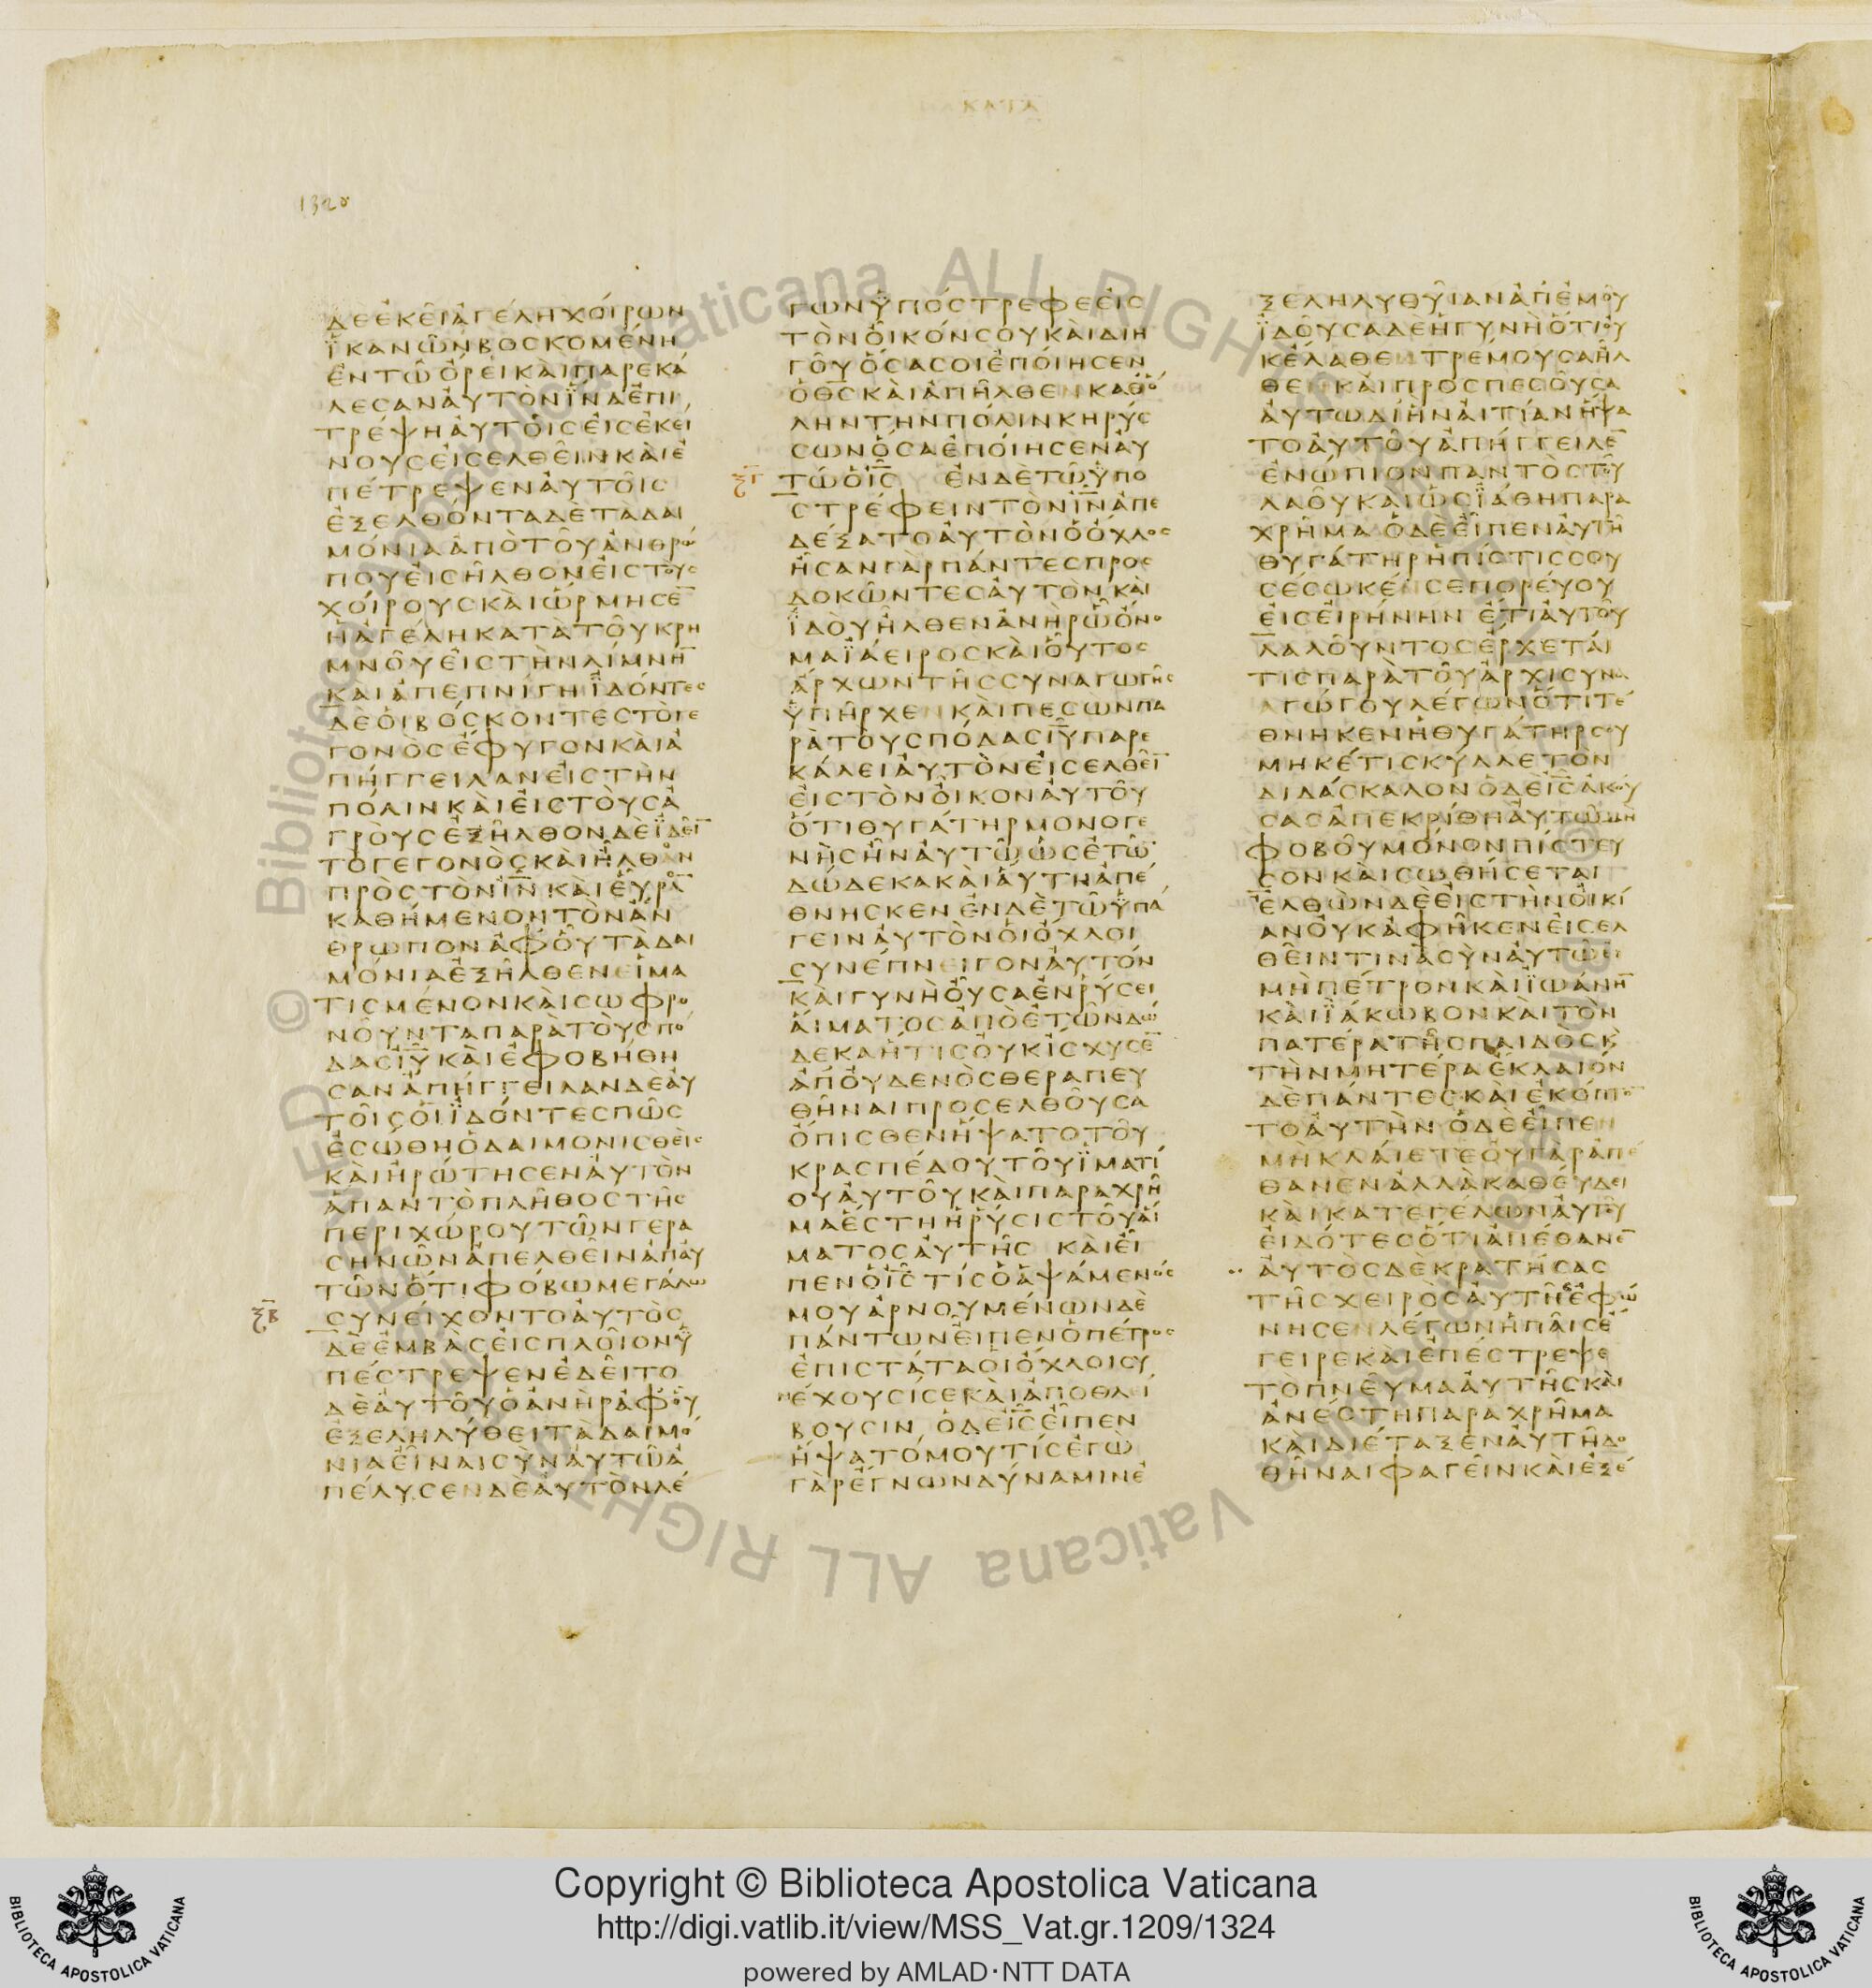 ΚΑΤΑ
1320
ΔΕΕΚΕΙΑΓΕΛΗΧΟΙΡΩΝ
ΪΚΑΝΩΝΒΟΣΚΟΜΕΝΗ
ΕΝΤΩΟΡΕΙΚΑΙΠΑΡΕΚΑ
ΛΕΣΑΝΑΥΤΟΝΪΝΑΕΠΙ
ΤΡΕΨΗΑΥΤΟΙΣΕΙΣΕΚΕΙ
ΝΟΥΣΕΙΣΕΛΘΕΙΝΚΑΙΕ
ΠΕΤΡΕΨΕΝΑΥΤΟΙΣ
ΕΞΕΛΘΟΝΤΑΔΕΤΑΔΑΙ
ΜΟΝΙΑΑΠΟΤΟΥΑΝΘΡΩ
ΠΟΥΕΙΣΗΛΘΟΝΕΙΣΤΟΥΣ
ΧΟΙΡΟΥΣΚΑΙΩΡΜΗΣΕ̅
ΗΑΓΕΛΗΚΑΤΑΤΟΥΚΡΗ
ΜΝΟΥΕΙΣΤΗΝΛΙΜΝΗ̅
ΚΑΙΑΠΕΠΝΙΓΗΪΔΟΝΤΕΣ
ΔΕΟΙΒΟΣΚΟΝΤΕΣΤΟΓΕ
ΓΟΝΟΣΕΦΥΓΟΝΚΑΙΑ
ΠΗΓΓΕΙΛΑΝΕΙΣΤΗΝ
ΠΟΛΙΝΚΑΙΕΙΣΤΟΥΣΑ
ΓΡΟΥΣΕΞΗΛΘΟΝΔΕΪΔΕΙ̅
ΤΟΓΕΓΟΝΟΣΚΑΙΗΛΘΟΝ
ΠΡΟΣΤΟΝΙ̅Ν̅ΚΑΙΕΥΡΑ̅
ΚΑΘΗΜΕΝΟΝΤΟΝΑΝ
ΘΡΩΠΟΝΑΦΟΥΤΑΔΑΙ
ΜΟΝΙΑΕΞΗΛΘΕΝΕΙΜΑ
ΤΙΣΜΕΝΟΝΚΑΙΣΩΦΡΟ
ΝΟΥΝΤΑΠΑΡΑΤΟΥΣΠΟ
ΔΑΣΙ̅Υ̅ΚΑΙΕΦΟΒΗΘΗ
ΣΑΝΑΠΗΓΓΕΙΛΑΝΔΕΑΥ
ΤΟΙΣΟΙΪΔΟΝΤΕΣΠΩΣ
ΕΣΩΘΗΟΔΑΙΜΟΝΙΣΘΕΙΣ
ΚΑΙΗΡΩΤΗΣΕΝΑΥΤΟΝ
ΑΠΑΝΤΟΠΛΗΘΟΣΤΗΣ
ΠΕΡΙΧΩΡΟΥΤΩΝΓΕΡΑ
ΣΗΝΩΝΑΠΕΛΘΕΙΝΑΠΑΥ
ΤΩΝΟΤΙΦΟΒΩΜΕΓΑΛΩ
Ξ̅Β̅ ΣΥΝΕΙΧΟΝΤΟΑΥΤΟΣ
ΔΕΕΜΒΑΣΕΙΣΠΛΟΙΟΝΫ
ΠΕΣΤΡΕΨΕΝΕΔΕΙΤΟ
ΔΕΑΥΤΟΥΟΑΝΗΡΑΦΟΥ
ΕΞΕΛΗΛΥΘΕΙΤΑΔΑΙΜΟ
ΝΙΑΕΙΝΑΙΣΥΝΑΥΤΩΑ
ΠΕΛΥΣΕΝΔΕΑΥΤΟΝΛΕ
ΓΩΝΫΠΟΣΤΡΕΦΕΕΙΣ
ΤΟΝΟΙΚΟΝΣΟΥΚΑΙΔΙΗ
ΓΟΥΟΣΑΣΟΙΕΠΟΙΗΣΕΝ
ΟΘ̅Σ̅ΚΑΙΑΠΗΛΘΕΝΚΑΘΟ
ΛΗΝΤΗΝΠΟΛΙΝΚΗΡΥΣ
ΣΩΝΟΣΑΕΠΟΙΗΣΕΝΑΥ
Ξ̅Γ̅ ΤΩΟΙ̅Σ̅ ΕΝΔΕΤΩΫΠΟ
ΣΤΡΕΦΕΙΝΤΟΝΙ̅Ν̅ΑΠΕ
ΔΕΞΑΤΟΑΥΤΟΝΟΟΧΛΟΣ
ΗΣΑΝΓΑΡΠΑΝΤΕΣΠΡΟΣ
ΔΟΚΩΝΤΕΣΑΥΤΟΝΚΑΙ
ΪΔΟΥΗΛΘΕΝΑΝΗΡΩΟΝΟ
ΜΑΪΑΕΙΡΟΣΚΑΙΟΥΤΟΣ
ΑΡΧΩΝΤΗΣΣΥΝΑΓΩΓΗΣ
ΫΠΗΡΧΕΝΚΑΙΠΕΣΩΝΠΑ
ΡΑΤΟΥΣΠΟΔΑΣΙ̅Υ̅ΠΑΡΕ
ΚΑΛΕΙΑΥΤΟΝΕΙΣΕΛΘΕΙ̅
ΕΙΣΤΟΝΟΙΚΟΝΑΥΤΟΥ
ΟΤΙΘΥΓΑΤΗΡΜΟΝΟΓΕ
ΝΗΣΗΝΑΥΤΩΩΣΕΤΩ̅
ΔΩΔΕΚΑΚΑΙΑΥΤΗΑΠΕ
ΘΝΗΣΚΕΝΕΝΔΕΤΩΫΠΑ
ΓΕΙΝΑΥΤΟΝΟΙΟΧΛΟΙ
ΣΥΝΕΠΝΕΙΓΟΝΑΥΤΟΝ
ΚΑΙΓΥΝΗΟΥΣΑΕΝΡΥΣΕΙ
ΑΙΜΑΤΟΣΑΠΟΕΤΩΝΔΩ
ΔΕΚΑΗΤΙΣΟΥΚΙΣΧΥΣΕ̅
ΑΠΟΥΔΕΝΟΣΘΕΡΑΠΕΥ
ΘΗΝΑΙΠΡΟΣΕΛΘΟΥΣΑ
ΟΠΙΣΘΕΝΗΨΑΤΟΤΟΥ
ΚΡΑΣΠΕΔΟΥΤΟΥΪΜΑΤΙ
ΟΥΑΥΤΟΥΚΑΙΠΑΡΑΧΡΗ
ΜΑΕΣΤΗΗΡΥΣΙΣΤΟΥΑΙ
ΜΑΤΟΣΑΥΤΗΣ ΚΑΙΕΙ
ΠΕΝΟΙ̅Σ̅ΤΙΣΟΑΨΑΜΕΝΟΣ
ΜΟΥΑΡΝΟΥΜΕΝΩΝΔΕ
ΠΑΝΤΩΝΕΙΠΕΝΟΠΕΤΡΟΣ
ΕΠΙΣΤΑΤΑΟΙΟΧΛΟΙΣΥ
ΝΕΧΟΥΣΙΣΕΚΑΙΑΠΟΘΛΙ
ΒΟΥΣΙΝ ΟΔΕΙ̅Σ̅ΕΙΠΕΝ
ΗΨΑΤΟΜΟΥΤΙΣΕΓΩ
ΓΑΡΕΓΝΩΝΔΥΝΑΜΙΝΕ
ΞΕΛΗΛΥΘΥΙΑΝΑΠΕΜΟΥ
ΪΔΟΥΣΑΔΕΗΓΥΝΗΟΤΙΟΥ
ΚΕΛΑΘΕΝΤΡΕΜΟΥΣΑΗΛ
ΘΕΝΚΑΙΠΡΟΣΠΕΣΟΥΣΑ
ΑΥΤΩΔΙΗΝΑΙΤΙΑΝΗΨΑ
ΤΟΑΥΤΟΥΑΠΗΓΓΕΙΛΕ̅
ΕΝΩΠΙΟΝΠΑΝΤΟΣΤΟΥ
ΛΑΟΥΚΑΙΩΣΪΑΘΗΠΑΡΑ
ΧΡΗΜΑ ΟΔΕΕΙΠΕΝΑΥΤΗ
ΘΥΓΑΤΗΡΗΠΙΣΤΙΣΣΟΥ
ΣΕΣΩΚΕΝΣΕΠΟΡΕΥΟΥ
ΕΙΣΕΙΡΗΝΗΝ ΕΤΙΑΥΤΟΥ
ΛΑΛΟΥΝΤΟΣΕΡΧΕΤΑΙ
ΤΙΣΠΑΡΑΤΟΥΑΡΧΙΣΥΝΑ
ΓΩΓΟΥΛΕΓΩΝΟΤΙΤΕ
ΘΝΗΚΕΝΗΘΥΓΑΤΗΡΣΟΥ
ΜΗΚΕΤΙΣΚΥΛΛΕΤΟΝ
ΔΙΔΑΣΚΑΛΟΝΟΔΕΙ̅Σ̅ΑΚΟΥ
ΣΑΣΑΠΕΚΡΙΘΗΑΥΤΩΜΗ
ΦΟΒΟΥΜΟΝΟΝΠΙΣΤΕΥ
ΣΟΝΚΑΙΣΩΘΗΣΕΤΑΙ
ΕΛΘΩΝΔΕΕΙΣΤΗΝΟΙΚΙ
ΑΝΟΥΚΑΦΗΚΕΝΕΙΣΕΛ
ΘΕΙΝΤΙΝΑΣΥΝΑΥΤΩΕΙ
ΜΗΠΕΤΡΟΝΚΑΙΪΩΑΝΗ̅
ΚΑΙΪΑΚΩΒΟΝΚΑΙΤΟΝ
ΠΑΤΕΡΑΤΗΣΠΑΙΔΟΣΚ
ΤΗΝΜΗΤΕΡΑΕΚΛΑΙΟΝ
ΔΕΠΑΝΤΕΣΚΑΙΕΚΟΠΤΟ̅
ΤΟΑΥΤΗΝ ΟΔΕΕΙΠΕΝ
ΜΗΚΛΑΙΕΤΕΟΥΓΑΡΑΠΕ
ΘΑΝΕΝΑΛΛΑΚΑΘΕΥΔΕΙ
ΚΑΙΚΑΤΕΓΕΛΩΝΑΥΤΟΥ
ΕΙΔΟΤΕΣΟΤΙΑΠΕΘΑΝΕ̅
ΑΥΤΟΣΔΕΚΡΑΤΗΣΑΣ
ΤΗΣΧΕΙΡΟΣΑΥΤΗΣΕΦΩ
ΝΗΣΕΝΛΕΓΩΝΗΠΑΙΣΕ
ΓΕΙΡΕΚΑΙΕΠΕΣΤΡΕΨΕ
ΤΟΠΝΕΥΜΑΑΥΤΗΣΚΑΙ
ΑΝΕΣΤΗΠΑΡΑΧΡΗΜΑ
ΚΑΙΔΙΕΤΑΞΕΝΑΥΤΗΔΟ
ΘΗΝΑΙΦΑΓΕΙΝΚΑΙΕΞΕ
© Biblioteca Apostolica Vaticana ALL RIGHTS RESERVED
Copyright © Biblioteca Apostolica Vaticana
http://digi.vatlib.it/view/MSS_Vat.gr.1209/1324
powered by AMLAD·NTT DATA
BIBLIOTECA APOSTOLICA VATICANA
BIBLIOTECA APOSTOLICA VATICANA